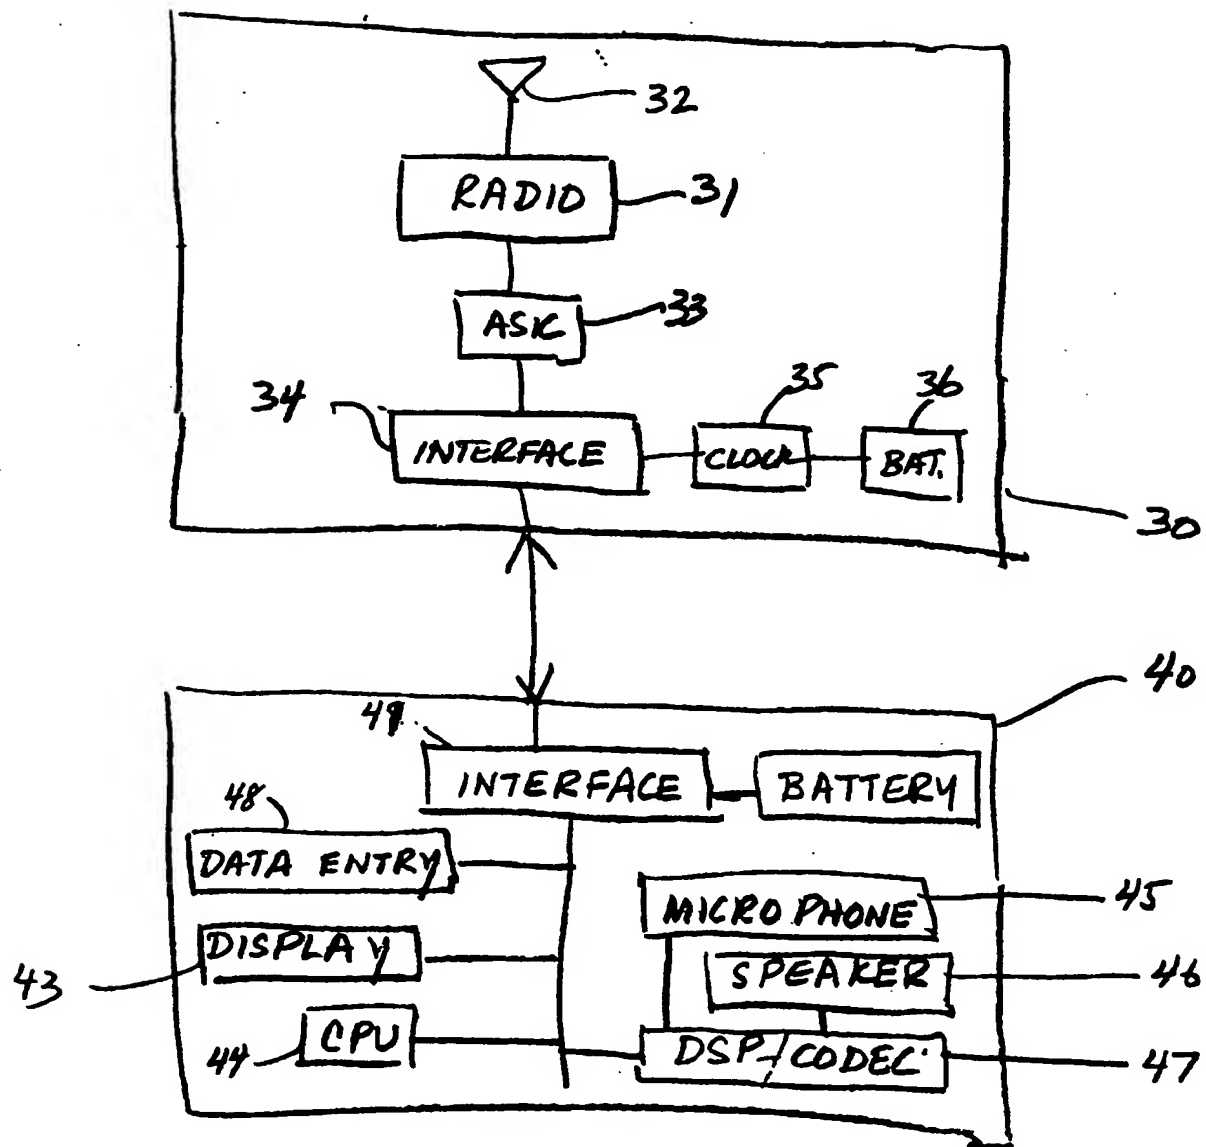 32
RADIO
31
ASIC
33
34
35
36
INTERFACE
CLOCK
BAT.
30
40
49
INTERFACE
BATTERY
48
DATA ENTRY
MICROPHONE
45
DISPLAY
SPEAKER
46
43
CPU
44
DSP/CODEC
47